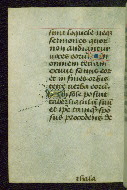 sunt loquele neqz
sermones quor
non audiantur
voces eorum In
omnem terram
exivit sonus eor
et in fines orbis
terre verba eorum
In sole posuit
tabernaculum suu
et ipse tanquam spo
sus procedens de
thala